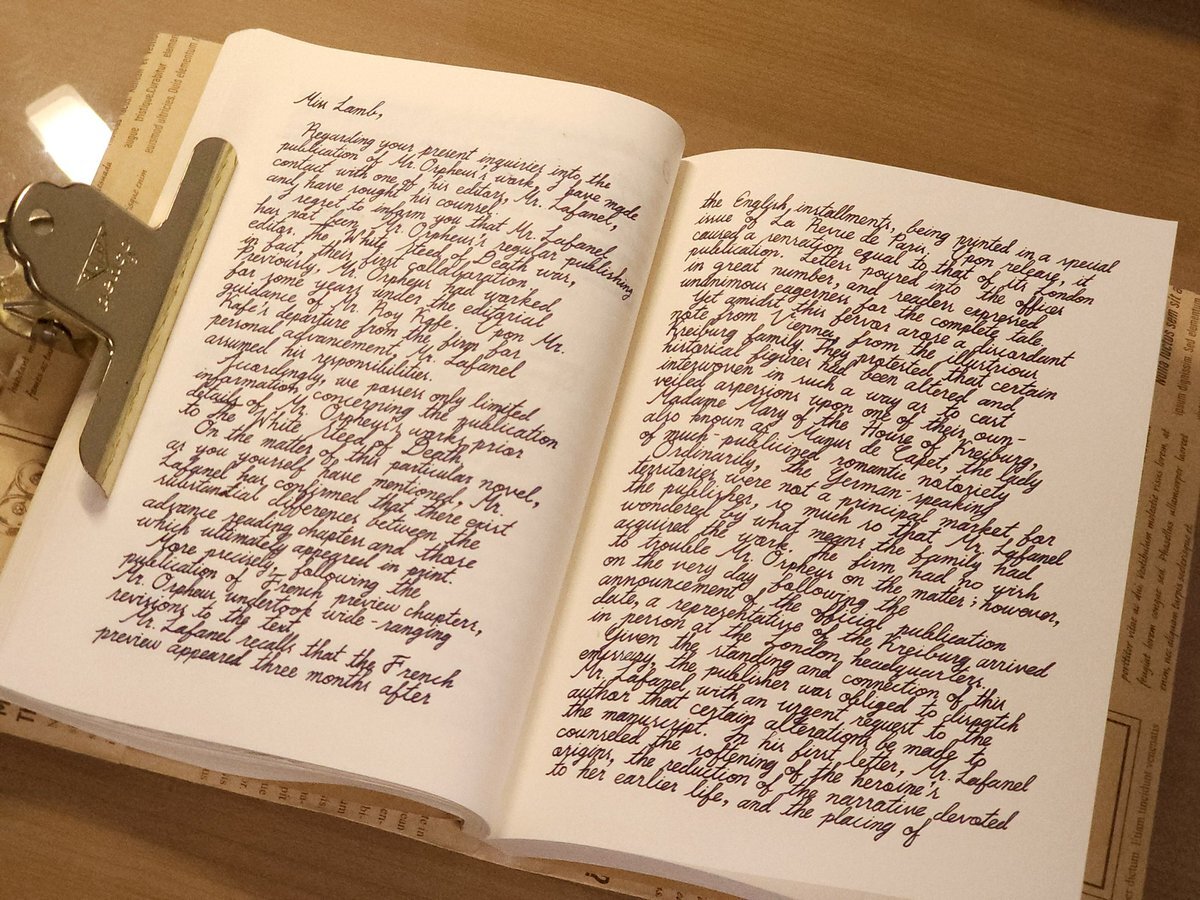 Miss Lamb,
Regarding your present inquiries into the
publication of Mr. Orpheus's work, I have made
contact with one of his editors, Mr. Lafanel,
and have sought his counsel.
I regret to inform you that Mr. Lafanel
has not been Mr. Orpheus's regular publishing
editor. The White Steed of Death was,
in fact, their first collaboration.
Previously, Mr. Orpheus had worked
for some years under the editorial
guidance of Mr. Roy Kafe. Upon Mr.
Kafe's departure from the firm for
personal advancement, Mr. Lafanel
assumed his responsibilities.
Accordingly, we possess only limited
information concerning the publication
details of Mr. Orpheus's works prior
to the White Steed of Death.
On the matter of this particular novel,
as you yourself have mentioned, Mr.
Lafanel has confirmed that there exist
substantial differences between the
advance reading chapters and those
which ultimately appeared in print.
More precisely, following the
publication of French preview chapters,
Mr. Orpheus undertook wide-ranging
revisions to the text.
Mr. Lafanel recalls that the French
preview appeared three months after
the English installments, being printed in a special
issue of La Revue de Paris. Upon release, it
caused a sensation equal to that of its London
publication. Letters poured into the offices
in great number, and readers expressed
unanimous eagerness for the complete tale.
Yet amidst this fervor arose a discordant
note from Vienna, from the illustrious
Kreiburg family. They protested that certain
historical figures had been altered and
interwoven in such a way as to cast
veiled aspersions upon one of their own-
Madame Mary of the House of Kreiburg,
also known as Manus de Capet, the lady
of much-publicized romantic notoriety
Ordinarily, the German-speaking
territories were not a principal market for
the publisher, so much so that Mr. Lafanel
wondered by what means the family had
acquired the work. The firm had no wish
to trouble Mr. Orpheus on the matter; however,
on the very day following the
announcement of the official publication
date, a representative of the Kreiburg arrived
in person at the London headquarters.
Given the standing and connection of this
emissary, the publisher was obliged to dispatch
Mr. Lafanel with an urgent request to the
author that certain alterations be made to
the manuscript. In his first letter, Mr. Lafanel
counseled the softening of the heroine's
origins, the reduction of the narrative devoted
to her earlier life, and the placing of